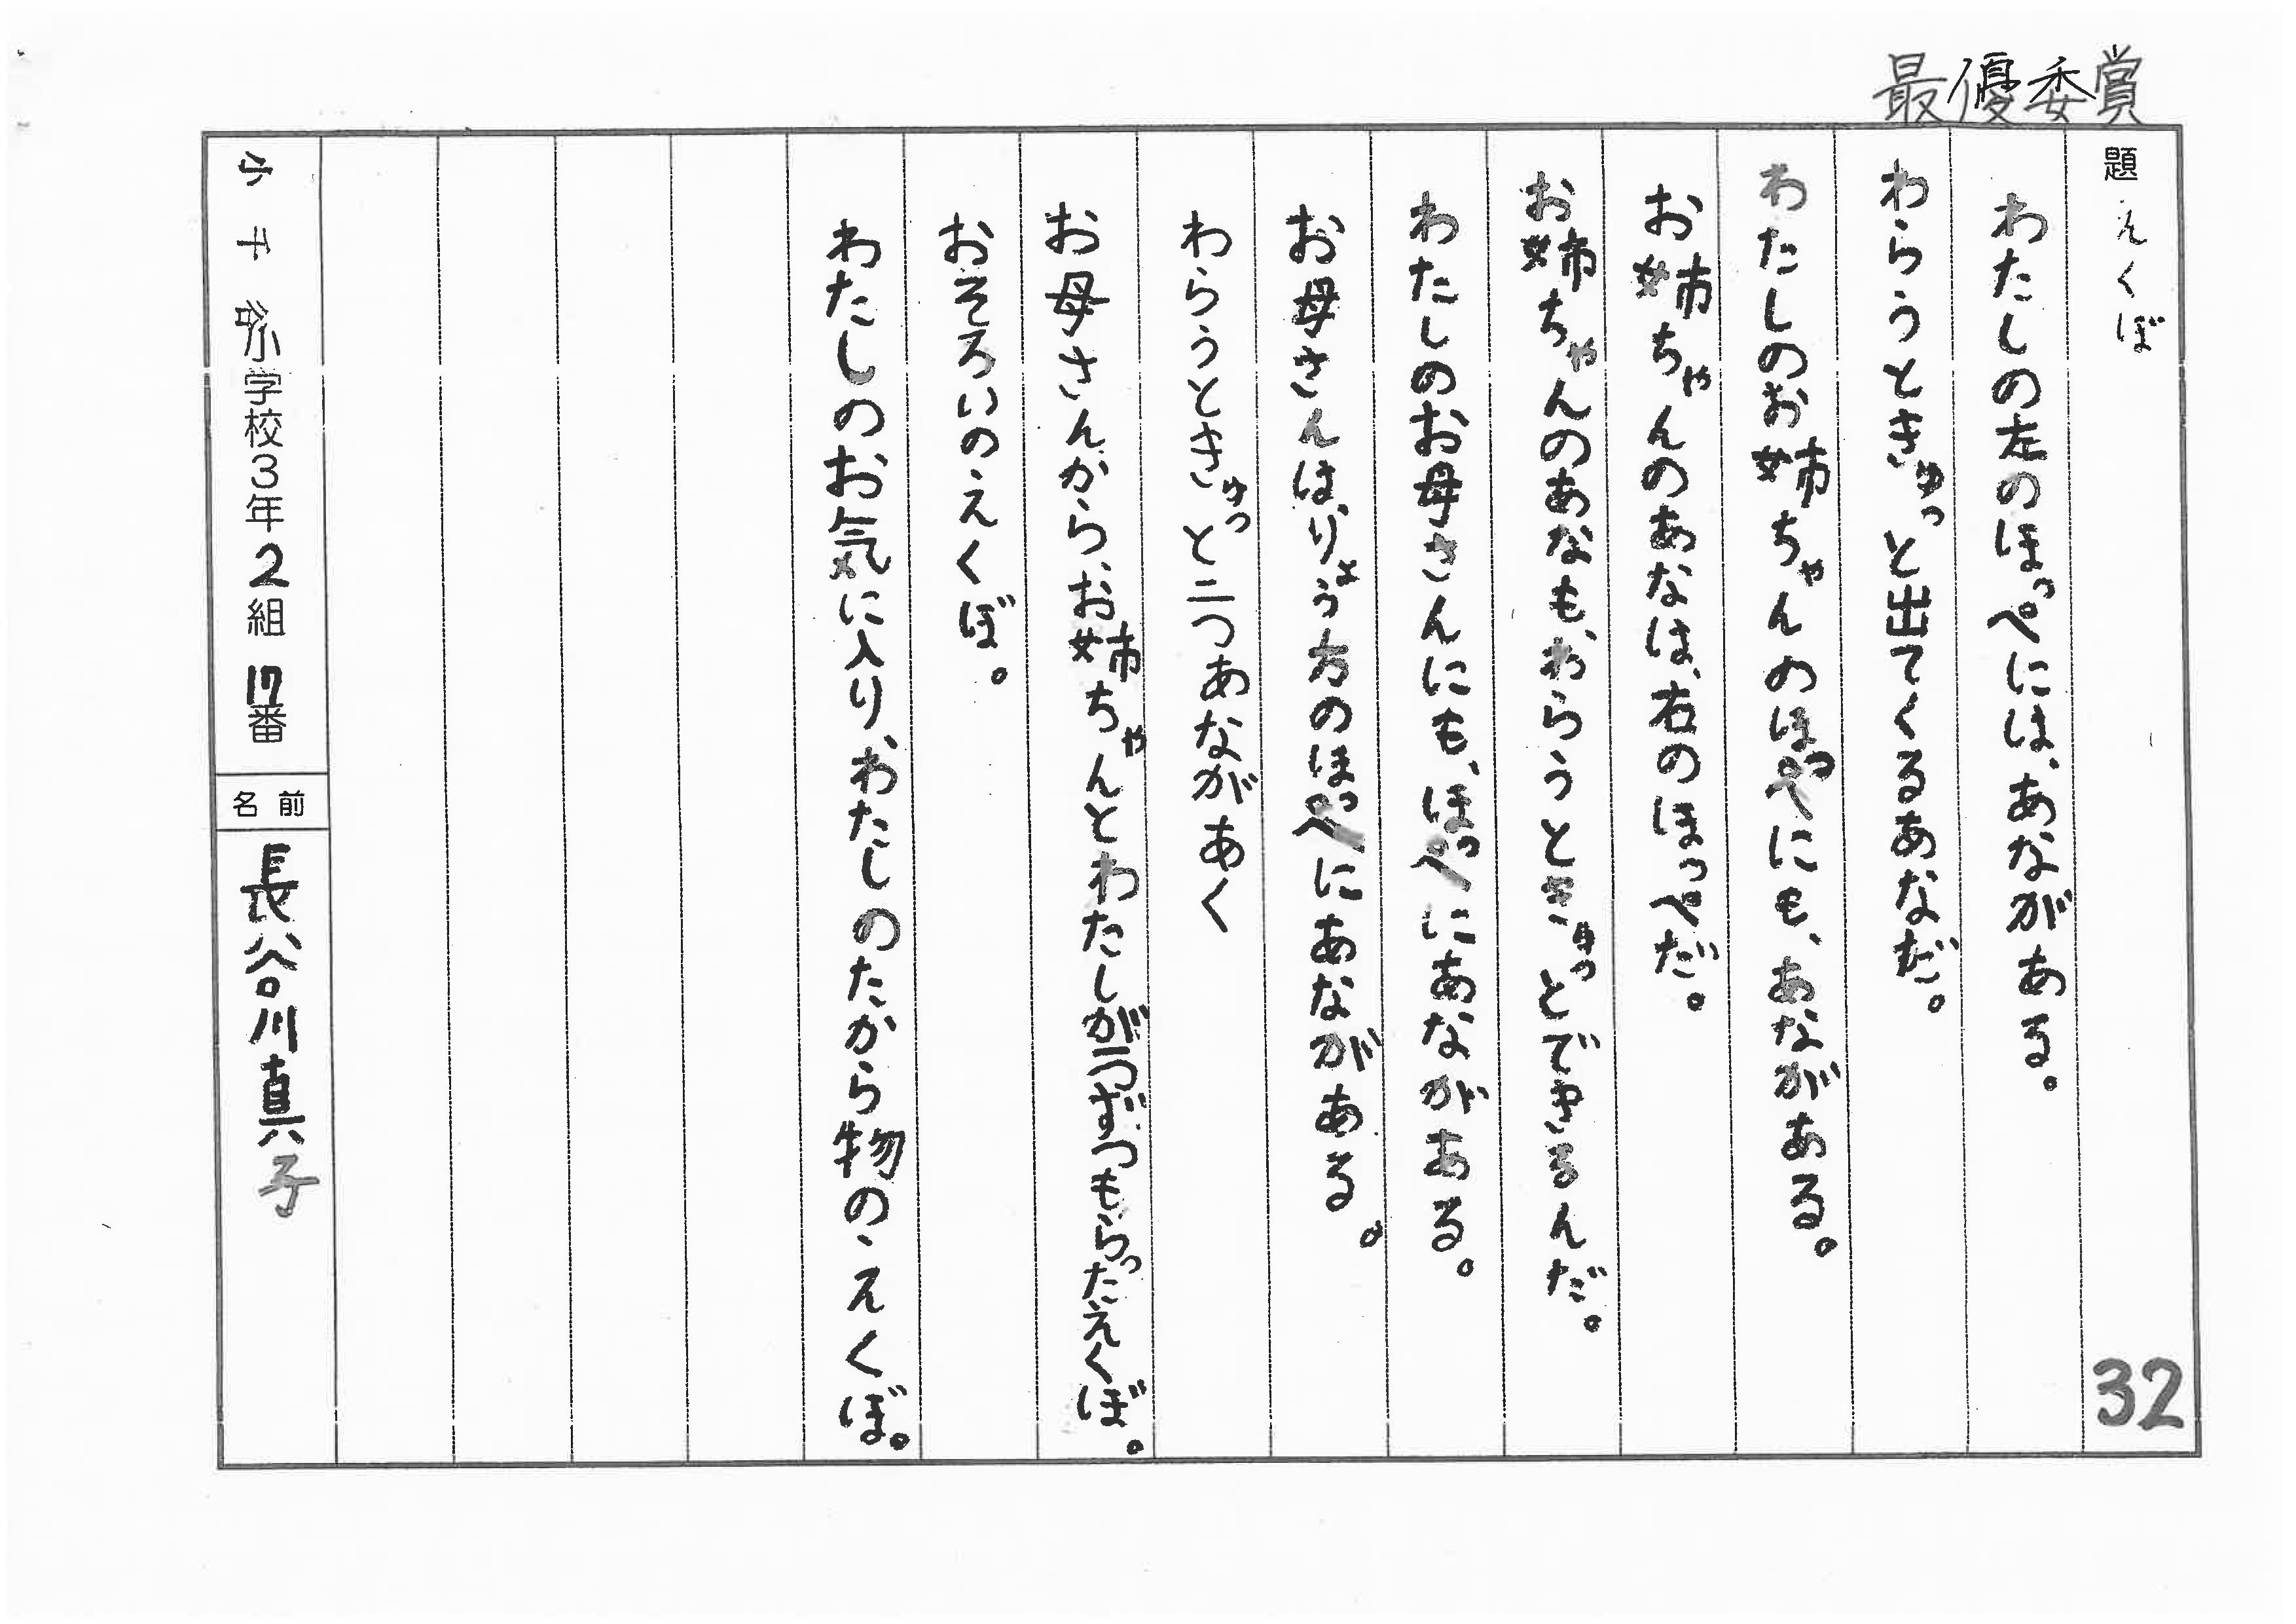 最優委賞
題 えくぼ
わたしの左のほっぺには、あながある。
わらうとぎゅっと出てくるあなだ。
わたしのお姉ちゃんのほっぺにも、あながある。
お姉ちゃんのあなは、右のほっぺだ。
お姉ちゃんのあなも、わらうとぎゅっとできるんだ。
わたしのお母さんにも、ほっぺにあながある。
お母さんは、りょう方のほっぺにあながある。
わらうとぎゅっと二つあながあく
お母さんから、お姉ちゃんとわたしが一つずつもらったえくぼ。
おそろいの、えくぼ。
わたしのお気に入り、わたしのたから物の、えくぼ。
小学校3年2組17番 名前 長谷川真子
32